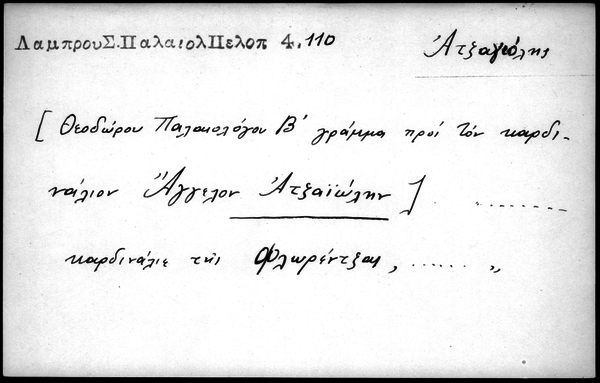 ΛαμπρουΣ.ΠαλαιολΠελοπ 4,110
Ἀτζαγιόλης
[ Θεοδώρου Παλαιολόγου Β' γράμμα πρὸς τὸν καρδι-
νάλιον Ἄγγελον Ἀτζαϊώλην ] . ........
καρδινάλιε τῆς Φλωρέντζας, ...... „